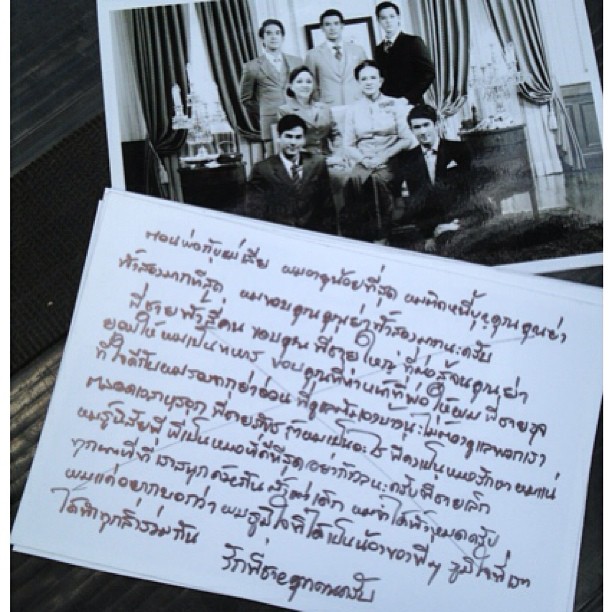 ตอนพ่อกับแม่เสีย ผมอายุน้อยที่สุด ผมติดหนี้บุญคุณคุณย่า
ทั้งสองมากที่สุด ผมขอบคุณคุณย่าทั้งสองมากนะครับ
พี่ชายทั้งสี่คน ขอบคุณพี่ชายใหญ่ ที่
ยอมให้ผมเป็นทหาร ขอบคุณที่ทำหน้าที่พ่อให้ผม พี่ชายรอง
ที่ใจดีกับผมรองจากย่าอ่อน
ตลอดเวลา พี่ชายภัทร ถ้าผมเป็นอะไร พี่คงเป็นหมอรักษาผมแน่
ผมรู้นิสัยพี่ พี่เป็นหมอที่ดีที่สุด อย่ากังวลนะครับ พี่ชายเล็ก
ทุกนาทีที่เราสนุกด้วยกันตั้งแต่เด็ก ผมจำได้ทั้งหมดครับ
ผมแค่อยากบอกว่า ผมภูมิใจที่ได้เป็นน้องของพี่ๆ ภูมิใจที่เรา
ได้ทำทุกสิ่งร่วมกัน
รักพี่ชายทุกคนครับ